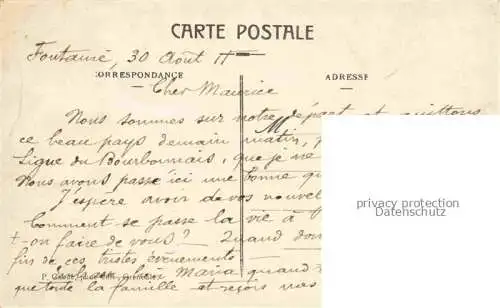 CARTE POSTALE
Fontaine, 30 Août 11
CORRESPONDANCE
ADRESSE
Cher Maurice
Nous sommes sur notre départ et quittons
ce beau pays demain matin,
Ligue du Bourbonnais, que je ne
Nous avons passé ici une bonne qu
J'espère avoir de vos nouvel
Comment se passe la vie à
t-on faire de vous? Quand don
fin de ces tristes évènements
Maria quand
que toute la famille et reçois nos
privacy protection
Datenschutz